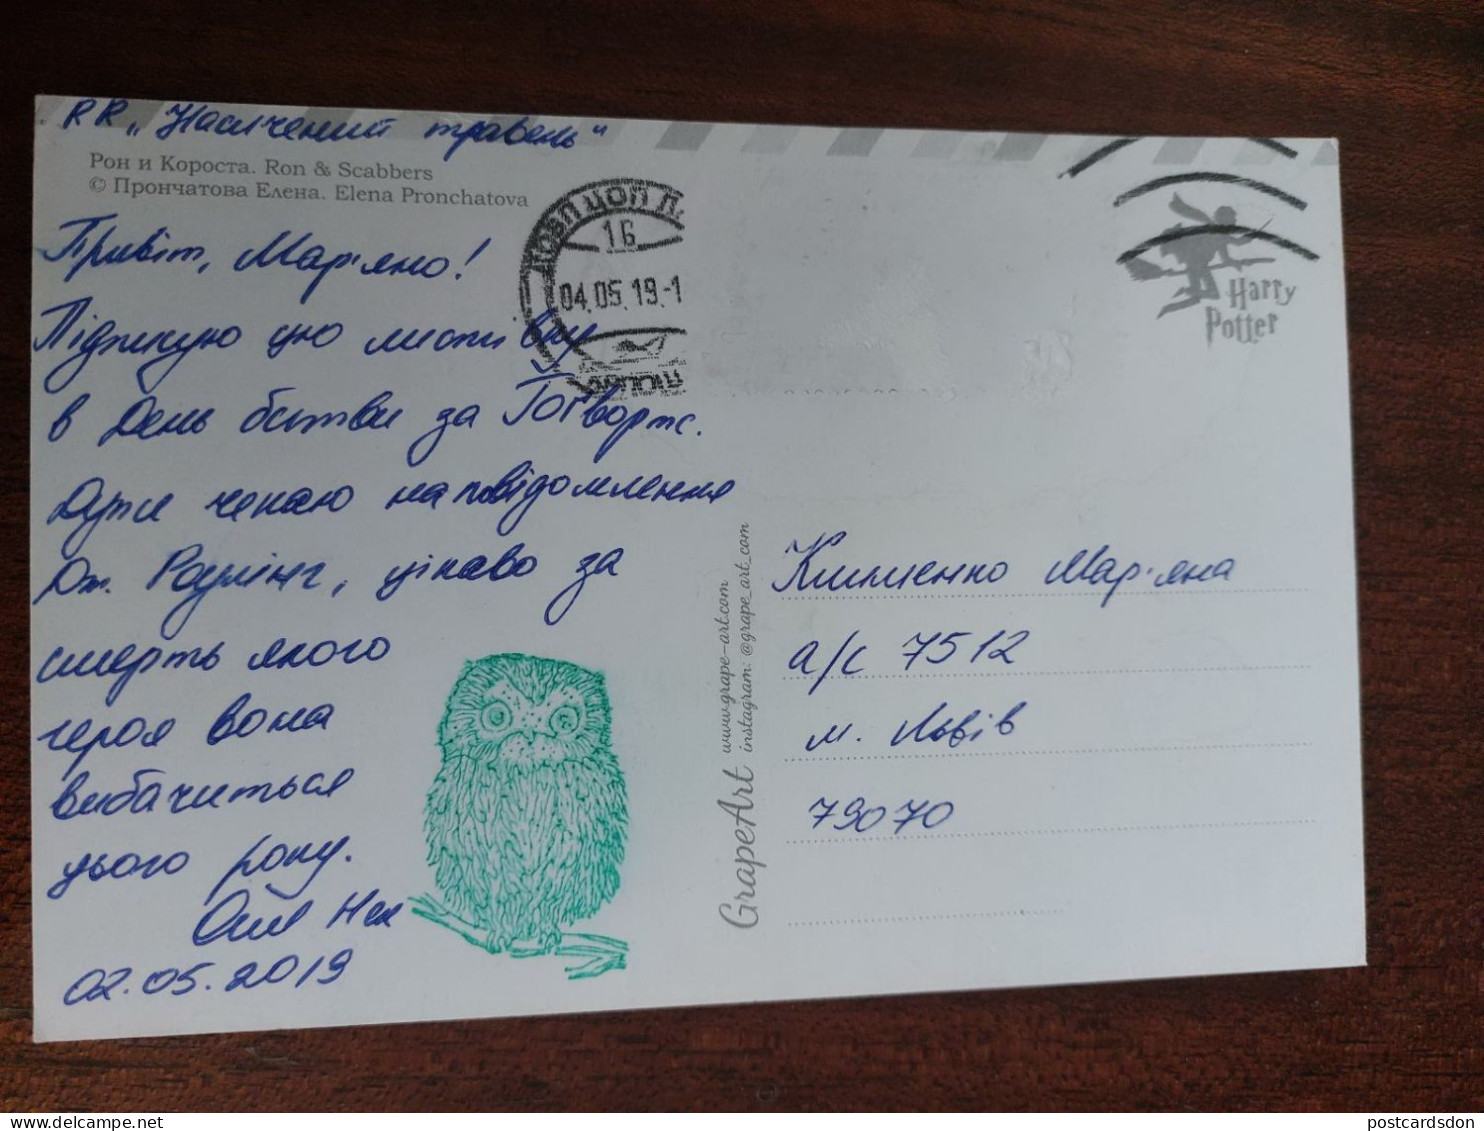 RR „Насичений травень"
Рон и Короста. Ron & Scabbers
© Прончатова Елена. Elena Pronchatova
Привіт, Мар'яно!
Підписую цю листівку
в День битви за Гоґвортс.
Дуже чекаю на повідомлення
Дж. Роулінг, цікаво за
смерть якого
героя вона
вибачиться
цього року.
02.05.2019
16
04.05.19-1
Harry
Potter
www.grape-art.com
instagram: @grape_art_com
GrapeArt
Клименко Мар'яна
а/с 7512
м. Львів
79070
postcardsdon